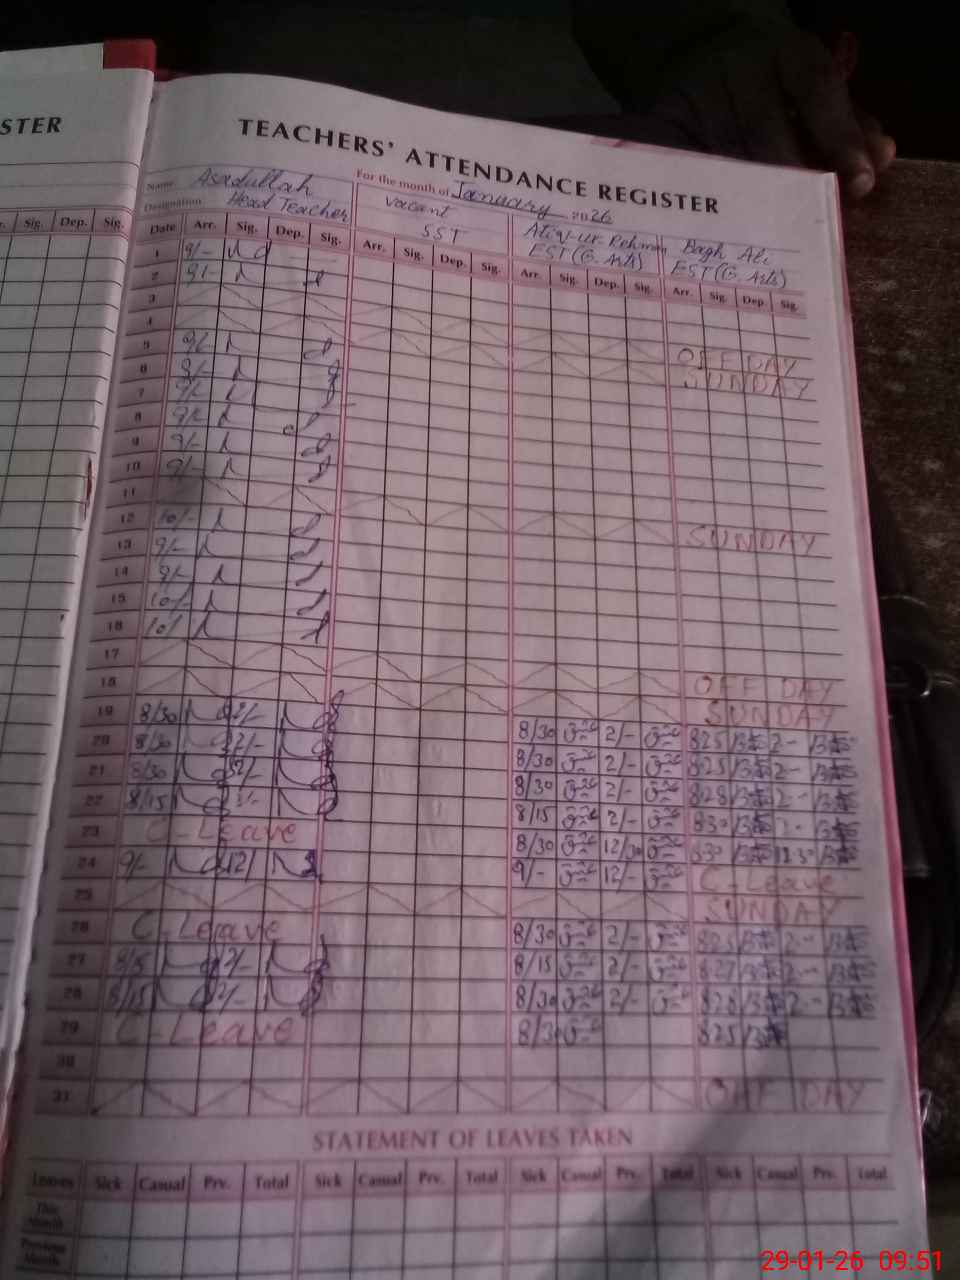 STER
TEACHERS' ATTENDANCE REGISTER
For the month of January 2026
Name Asadullah
Designation Head Teacher
vacant
SST
Atiq-ur-Rehman
EST (G. Arts)
Bagh Ali
EST (G. Arts)
Sig. Dep. Sig.
Date Arr. Sig. Dep. Sig. Arr. Sig. Dep. Sig. Arr. Sig. Dep. Sig. Arr. Sig. Dep. Sig.
1 9/-
2 9/-
3 OFF DAY
4 SUNDAY
5 9/-
6
7 9/-
8 9/-
9 9/-
10 9/-
11 SUNDAY
12 10/-
13 9/-
14 9/-
15 10/-
16 10/-
17 OFF DAY
18 SUNDAY
19 8/30 2/- 8/30 2/- 825 2-
20 8/30 2/- 8/30 2/- 825 2-
21 8/30 2/- 8/30 2/- 828 2-
22 8/15 2/- 8/15 2/- 830 2-
23 C-Leave 8/30 12/30 830 12-30
24 9/- 12/ 9/- 12/- C-Leave
25 SUNDAY
26 C-Leave 8/30 2/- 825 2-
27 8/15 2/- 8/15 2/- 827 2-
28 8/15 2/- 8/30 2/- 828 2-
29 C-Leave 8/30 825
30
31 OFF DAY
STATEMENT OF LEAVES TAKEN
Leaves Sick Casual Prv. Total Sick Casual Prv. Total Sick Casual Prv. Total Sick Casual Prv. Total
This Month
Previous Month
29-01-26 09:51